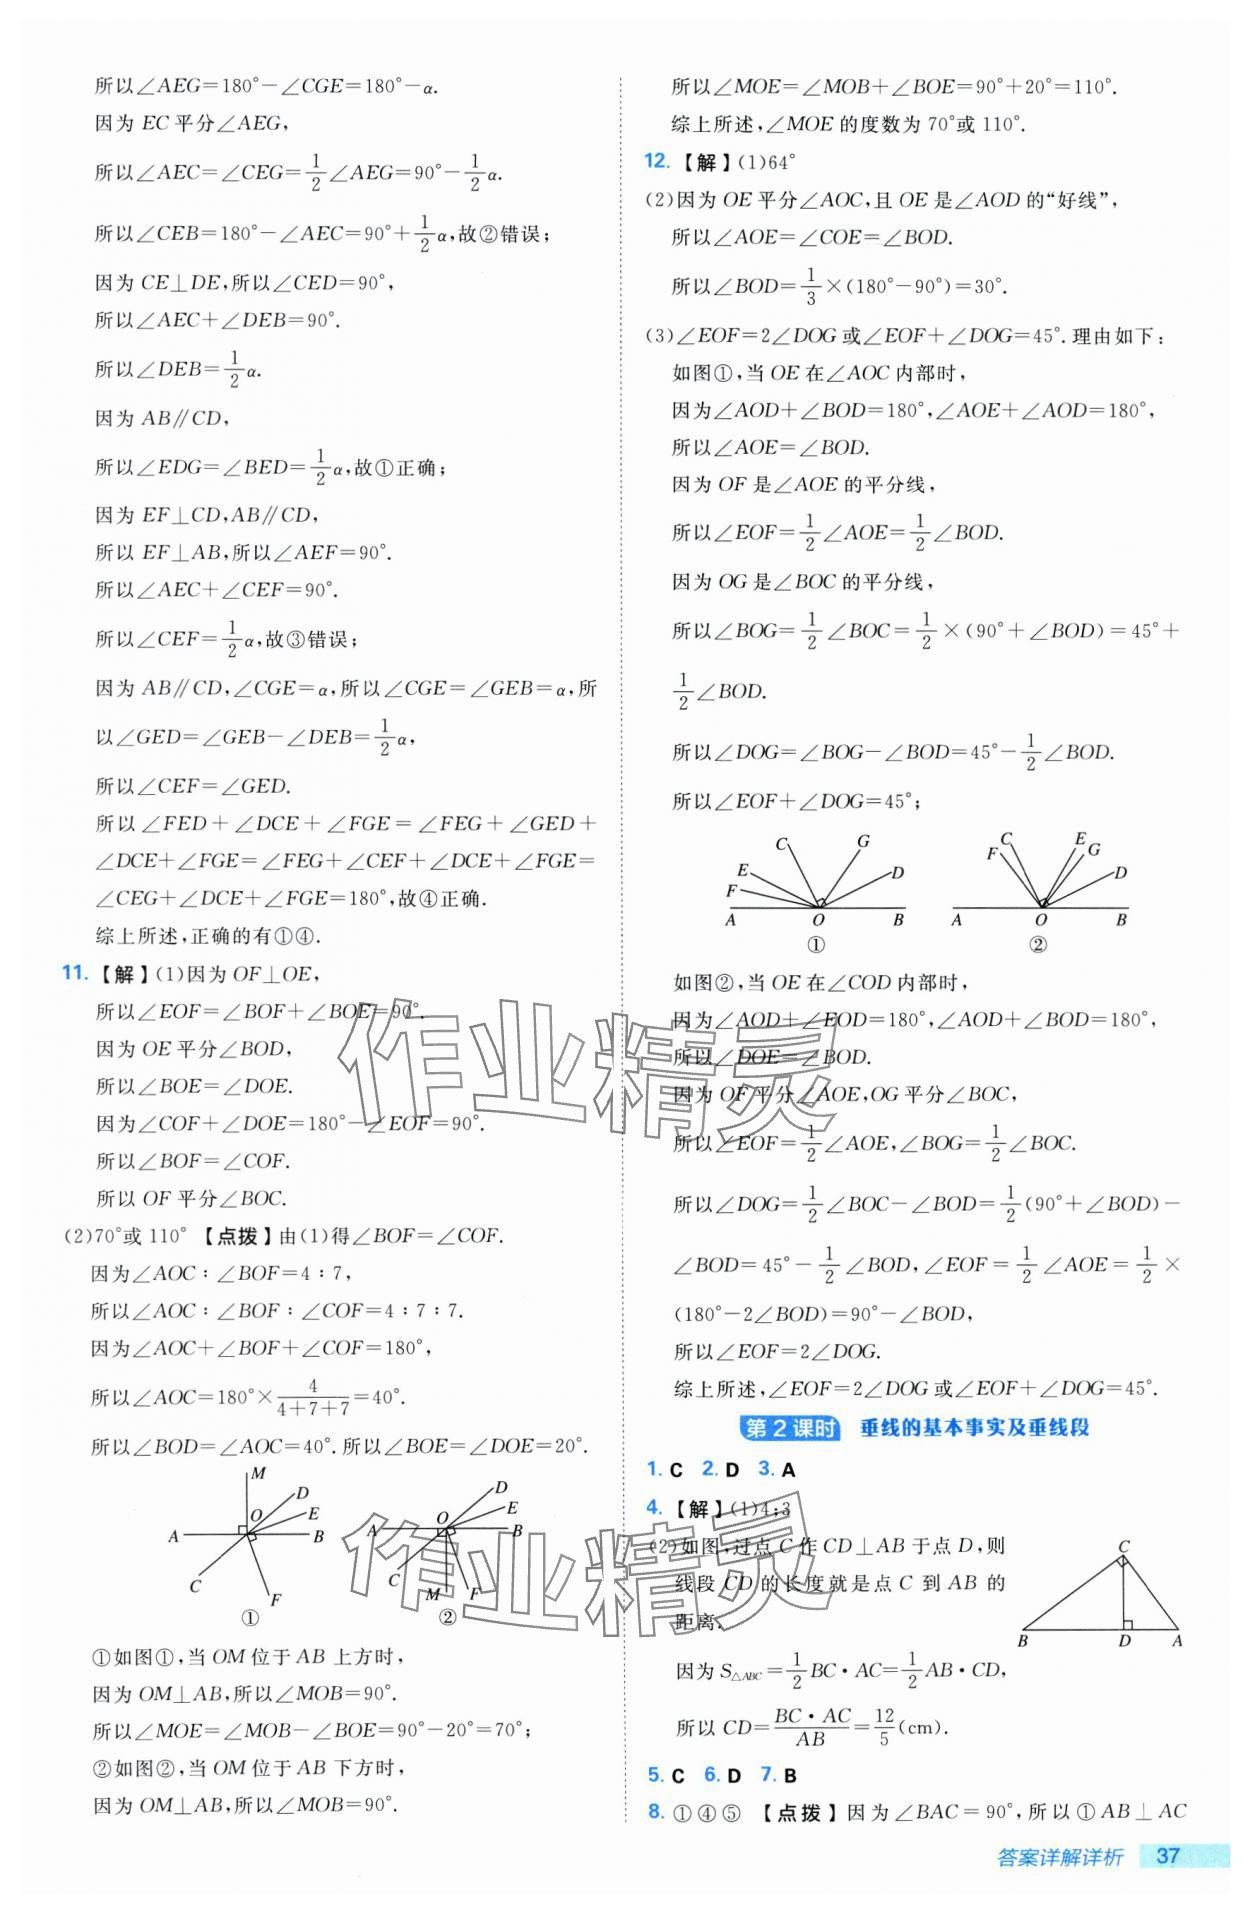 所以∠AEG=180°-∠CGE=180°-α.
因为 EC 平分∠AEG,
所以∠AEC=∠CEG=1/2∠AEG=90°-1/2α.
所以∠CEB=180°-∠AEC=90°+1/2α,故②错误;
因为 CE⊥DE,所以∠CED=90°,
所以∠AEC+∠DEB=90°.
所以∠DEB=1/2α.
因为 AB∥CD,
所以∠EDG=∠BED=1/2α,故①正确;
因为 EF⊥CD,AB∥CD,
所以 EF⊥AB,所以∠AEF=90°.
所以∠AEC+∠CEF=90°.
所以∠CEF=1/2α,故③错误;
因为 AB∥CD,∠CGE=α,所以∠CGE=∠GEB=α,所
以∠GED=∠GEB-∠DEB=1/2α,
所以∠CEF=∠GED.
所以∠FED+∠DCE+∠FGE=∠FEG+∠GED+
∠DCE+∠FGE=∠FEG+∠CEF+∠DCE+∠FGE=
∠CEG+∠DCE+∠FGE=180°,故④正确.
综上所述,正确的有①④.
11.【解】(1)因为 OF⊥OE,
所以∠EOF=∠BOF+∠BOE=90°.
因为 OE 平分∠BOD,
所以∠BOE=∠DOE.
因为∠COF+∠DOE=180°-∠EOF=90°.
所以∠BOF=∠COF.
所以 OF 平分∠BOC.
(2)70°或 110° 【点拨】由(1)得∠BOF=∠COF.
因为∠AOC:∠BOF=4:7,
所以∠AOC:∠BOF:∠COF=4:7:7.
因为∠AOC+∠BOF+∠COF=180°,
所以∠AOC=180°×4/(4+7+7)=40°.
所以∠BOD=∠AOC=40°.所以∠BOE=∠DOE=20°.
M
D
O
E
A
B
C
F
①
D
E
O
A
B
C
M
F
②
①如图①,当 OM 位于 AB 上方时,
因为 OM⊥AB,所以∠MOB=90°.
所以∠MOE=∠MOB-∠BOE=90°-20°=70°;
②如图②,当 OM 位于 AB 下方时,
因为 OM⊥AB,所以∠MOB=90°.
所以∠MOE=∠MOB+∠BOE=90°+20°=110°.
综上所述,∠MOE 的度数为 70°或 110°.
12.【解】(1)64°
(2)因为 OE 平分∠AOC,且 OE 是∠AOD 的“好线”,
所以∠AOE=∠COE=∠BOD.
所以∠BOD=1/3×(180°-90°)=30°.
(3)∠EOF=2∠DOG 或∠EOF+∠DOG=45°.理由如下:
如图①,当 OE 在∠AOC 内部时,
因为∠AOD+∠BOD=180°,∠AOE+∠AOD=180°,
所以∠AOE=∠BOD.
因为 OF 是∠AOE 的平分线,
所以∠EOF=1/2∠AOE=1/2∠BOD.
因为 OG 是∠BOC 的平分线,
所以∠BOG=1/2∠BOC=1/2×(90°+∠BOD)=45°+
1/2∠BOD.
所以∠DOG=∠BOG-∠BOD=45°-1/2∠BOD.
所以∠EOF+∠DOG=45°;
C
G
E
D
F
A
O
B
①
C
E
F
G
D
A
O
B
②
如图②,当 OE 在∠COD 内部时,
因为∠AOD+∠EOD=180°,∠AOD+∠BOD=180°,
所以∠DOE=∠BOD.
因为 OF 平分∠AOE,OG 平分∠BOC,
所以∠EOF=1/2∠AOE,∠BOG=1/2∠BOC.
所以∠DOG=1/2∠BOC-∠BOD=1/2(90°+∠BOD)-
∠BOD=45°-1/2∠BOD,∠EOF=1/2∠AOE=1/2×
(180°-2∠BOD)=90°-∠BOD,
所以∠EOF=2∠DOG.
综上所述,∠EOF=2∠DOG 或∠EOF+∠DOG=45°.
第 2 课时 垂线的基本事实及垂线段
1. C 2. D 3. A
4.【解】(1)4;3
(2)如图,过点 C 作 CD⊥AB 于点 D,则
线段 CD 的长度就是点 C 到 AB 的
距离.
因为 S△ABC=1/2BC·AC=1/2AB·CD,
所以 CD=BC·AC/AB=12/5(cm).
C
B
D
A
5. C 6. D 7. B
8. ①④⑤ 【点拨】因为∠BAC=90°,所以①AB⊥AC
作业精灵
作业精灵
答案详解详析 37